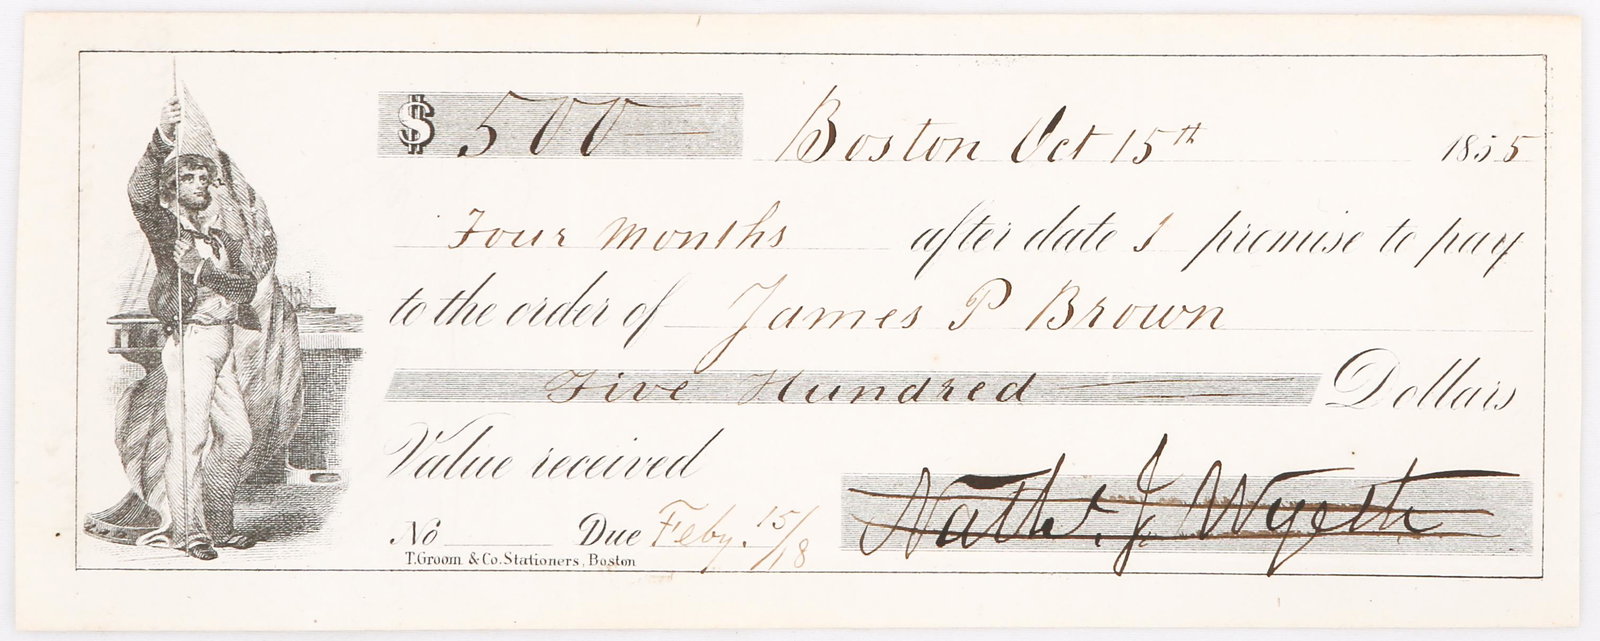 $ 500
Boston Oct 15th 1855
Four Months after date I promise to pay
to the order of James P Brown
Five Hundred Dollars
Value received
No Due Feby. 15/18
Nathl. J. Wyeth
T. Groom & Co. Stationers, Boston